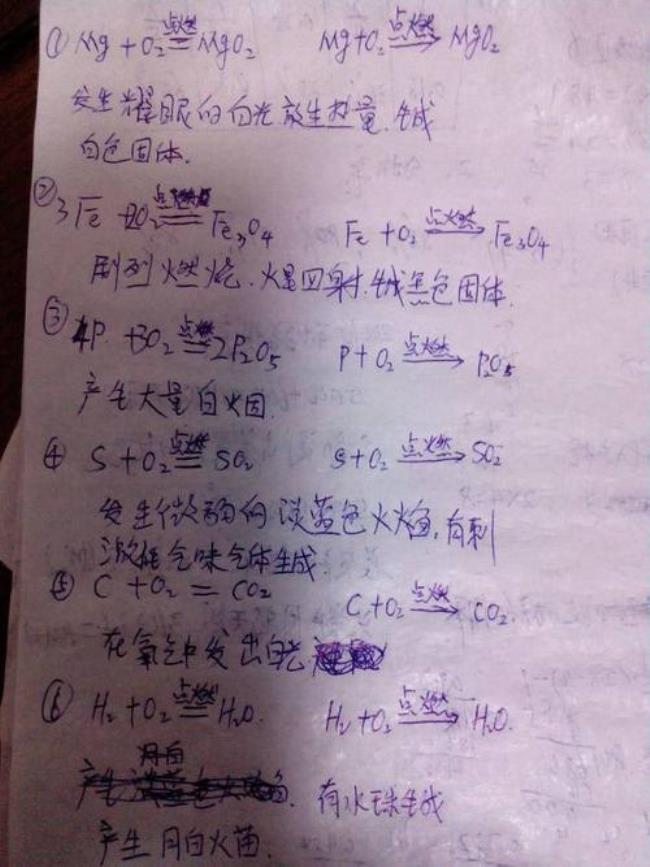 ① Mg + O₂ 点燃== MgO₂ Mg+O₂ 点燃→ MgO₂
发生耀眼的白光放生热量.生成
白色固体.
② 3Fe + 2O₂ 点燃== Fe₃O₄ Fe + O₂ 点燃→ Fe₃O₄
剧烈燃烧.火星四射.生成黑色固体.
③ 4P + 5O₂ 点燃== 2P₂O₅ P + O₂ 点燃→ P₂O₅
产生大量白火因.
④ S + O₂ 点燃== SO₂ S+O₂ 点燃→ SO₂
发生微弱的淡蓝色火焰,有刺
激性气味气体生成
⑤ C + O₂ = CO₂ C+O₂ 点燃→ CO₂.
在氧气中发出白光
⑥ H₂ + O₂ 点燃== H₂O. H₂+O₂ 点燃→ H₂O.
有水珠生成
产生月白火苗.